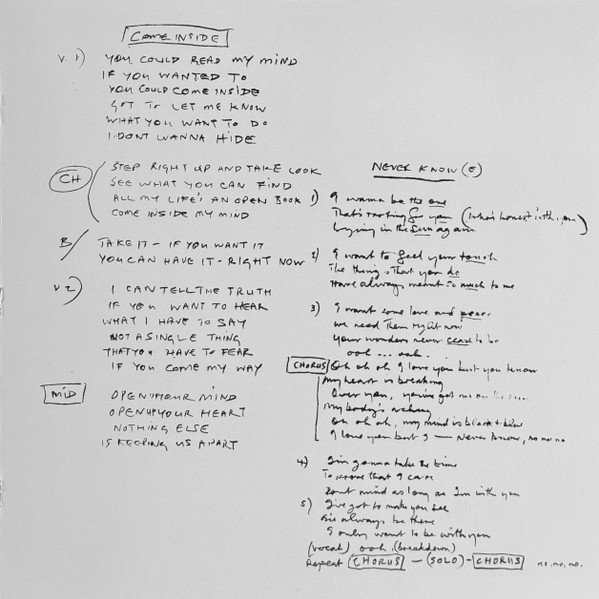 COME INSIDE
V. 1) YOU COULD READ MY MIND
IF YOU WANTED TO
YOU COULD COME INSIDE
GOT TO LET ME KNOW
WHAT YOU WANT TO DO
I DONT WANNA HIDE
CH STEP RIGHT UP AND TAKE LOOK
SEE WHAT YOU CAN FIND
ALL MY LIFE'S AN OPEN BOOK
COME INSIDE MY MIND
B/ TAKE IT - IF YOU WANT IT
YOU CAN HAVE IT - RIGHT NOW
V2) I CAN TELL THE TRUTH
IF YOU WANT TO HEAR
WHAT I HAVE TO SAY
NOT A SINGLE THING
THAT YOU HAVE TO FEAR
IF YOU COME MY WAY
MID OPEN UP YOUR MIND
OPEN UP YOUR HEART
NOTHING ELSE
IS KEEPING US APART
NEVER KNOW (E)
1) I wanna be the one
That's rooting for you (who's honest with you)
Lying in the sun again
2) I want to feel your touch
The things that you do
Have always meant so much to me
3) I want some love and peace
we need them right now
Your wonders never cease to be
ooh ... ooh .
CHORUS Oh oh oh I love you but you know
My heart is breaking
Over you, you've got me on the
My body's aching
Oh oh oh, my mind is black + blue
I love you but I — Never know, no no no
4) I'm gonna take the time
To prove that I care
Dont mind as long as I'm with you
5) I've got to make you see
I'll always be there
I only want to be with you
(vocal) ooh. (breakdown)
Repeat CHORUS — (SOLO) - CHORUS no, no, no.